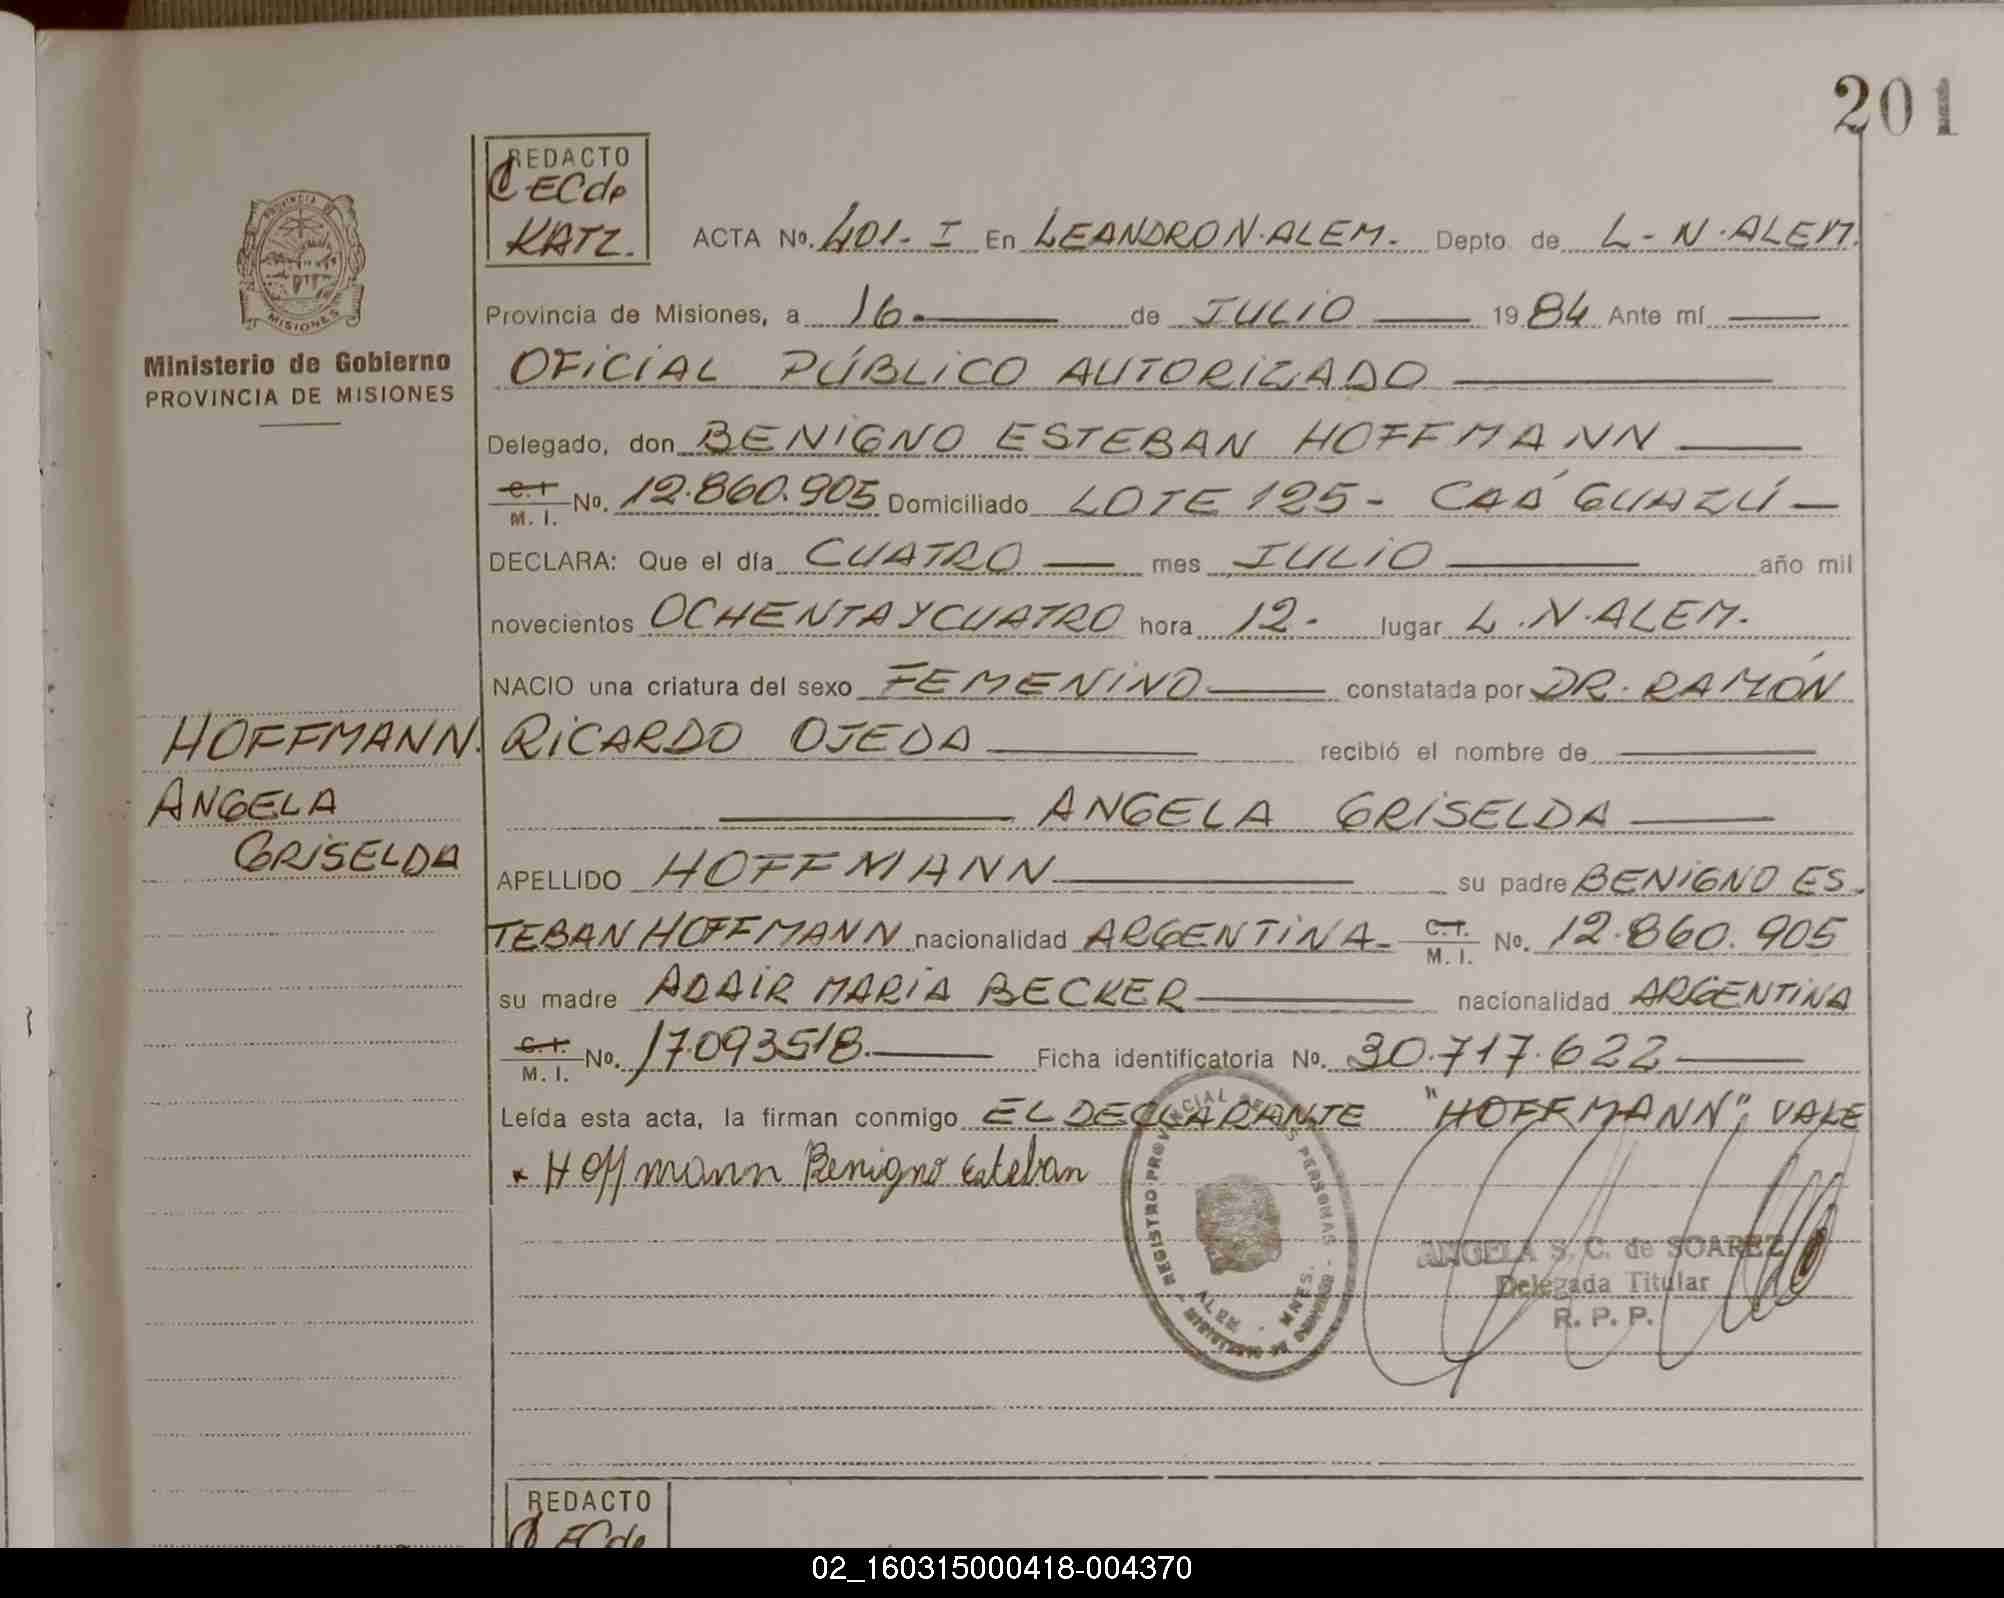 201
REDACTO
EC de
KATZ.
ACTA No. 401-I En LEANDRO N. ALEM. Depto. de L-N. ALEM.
PROVINCIA DE
MISIONES
Ministerio de Gobierno
PROVINCIA DE MISIONES
Provincia de Misiones, a 16 de JULIO 1984 Ante mí
OFICIAL PÚBLICO AUTORIZADO
Delegado, don BENIGNO ESTEBAN HOFFMANN
C. I. M. I. No. 12.860.905 Domiciliado LOTE 125- CAÁ GUAZÚ
DECLARA: Que el día CUATRO mes JULIO año mil
novecientos OCHENTA Y CUATRO hora 12. lugar L. N. ALEM.
NACIO una criatura del sexo FEMENINO constatada por DR. RAMÓN
RICARDO OJEDA recibió el nombre de
ANGELA GRISELDA
HOFFMANN.
ANGELA
GRISELDA
APELLIDO HOFFMANN su padre BENIGNO ES-
TEBAN HOFFMANN nacionalidad ARGENTINA- C. I. M. I. No. 12.860.905
su madre ADAIR MARIA BECKER nacionalidad ARGENTINA
C. I. M. I. No. 17.093518. Ficha identificatoria No. 30.717.622
Leída esta acta, la firman conmigo EL DECLARANTE "HOFFMANN"; VALE
Hoffmann Benigno Esteban
REGISTRO PROVINCIAL DE LAS PERSONAS
ALEM - MNES.
MINISTERIO DE GOBIERNO
ANGELA S. C. de SOAREZ
Delegada Titular
R. P. P.
REDACTO
EC de
02_160315000418-004370